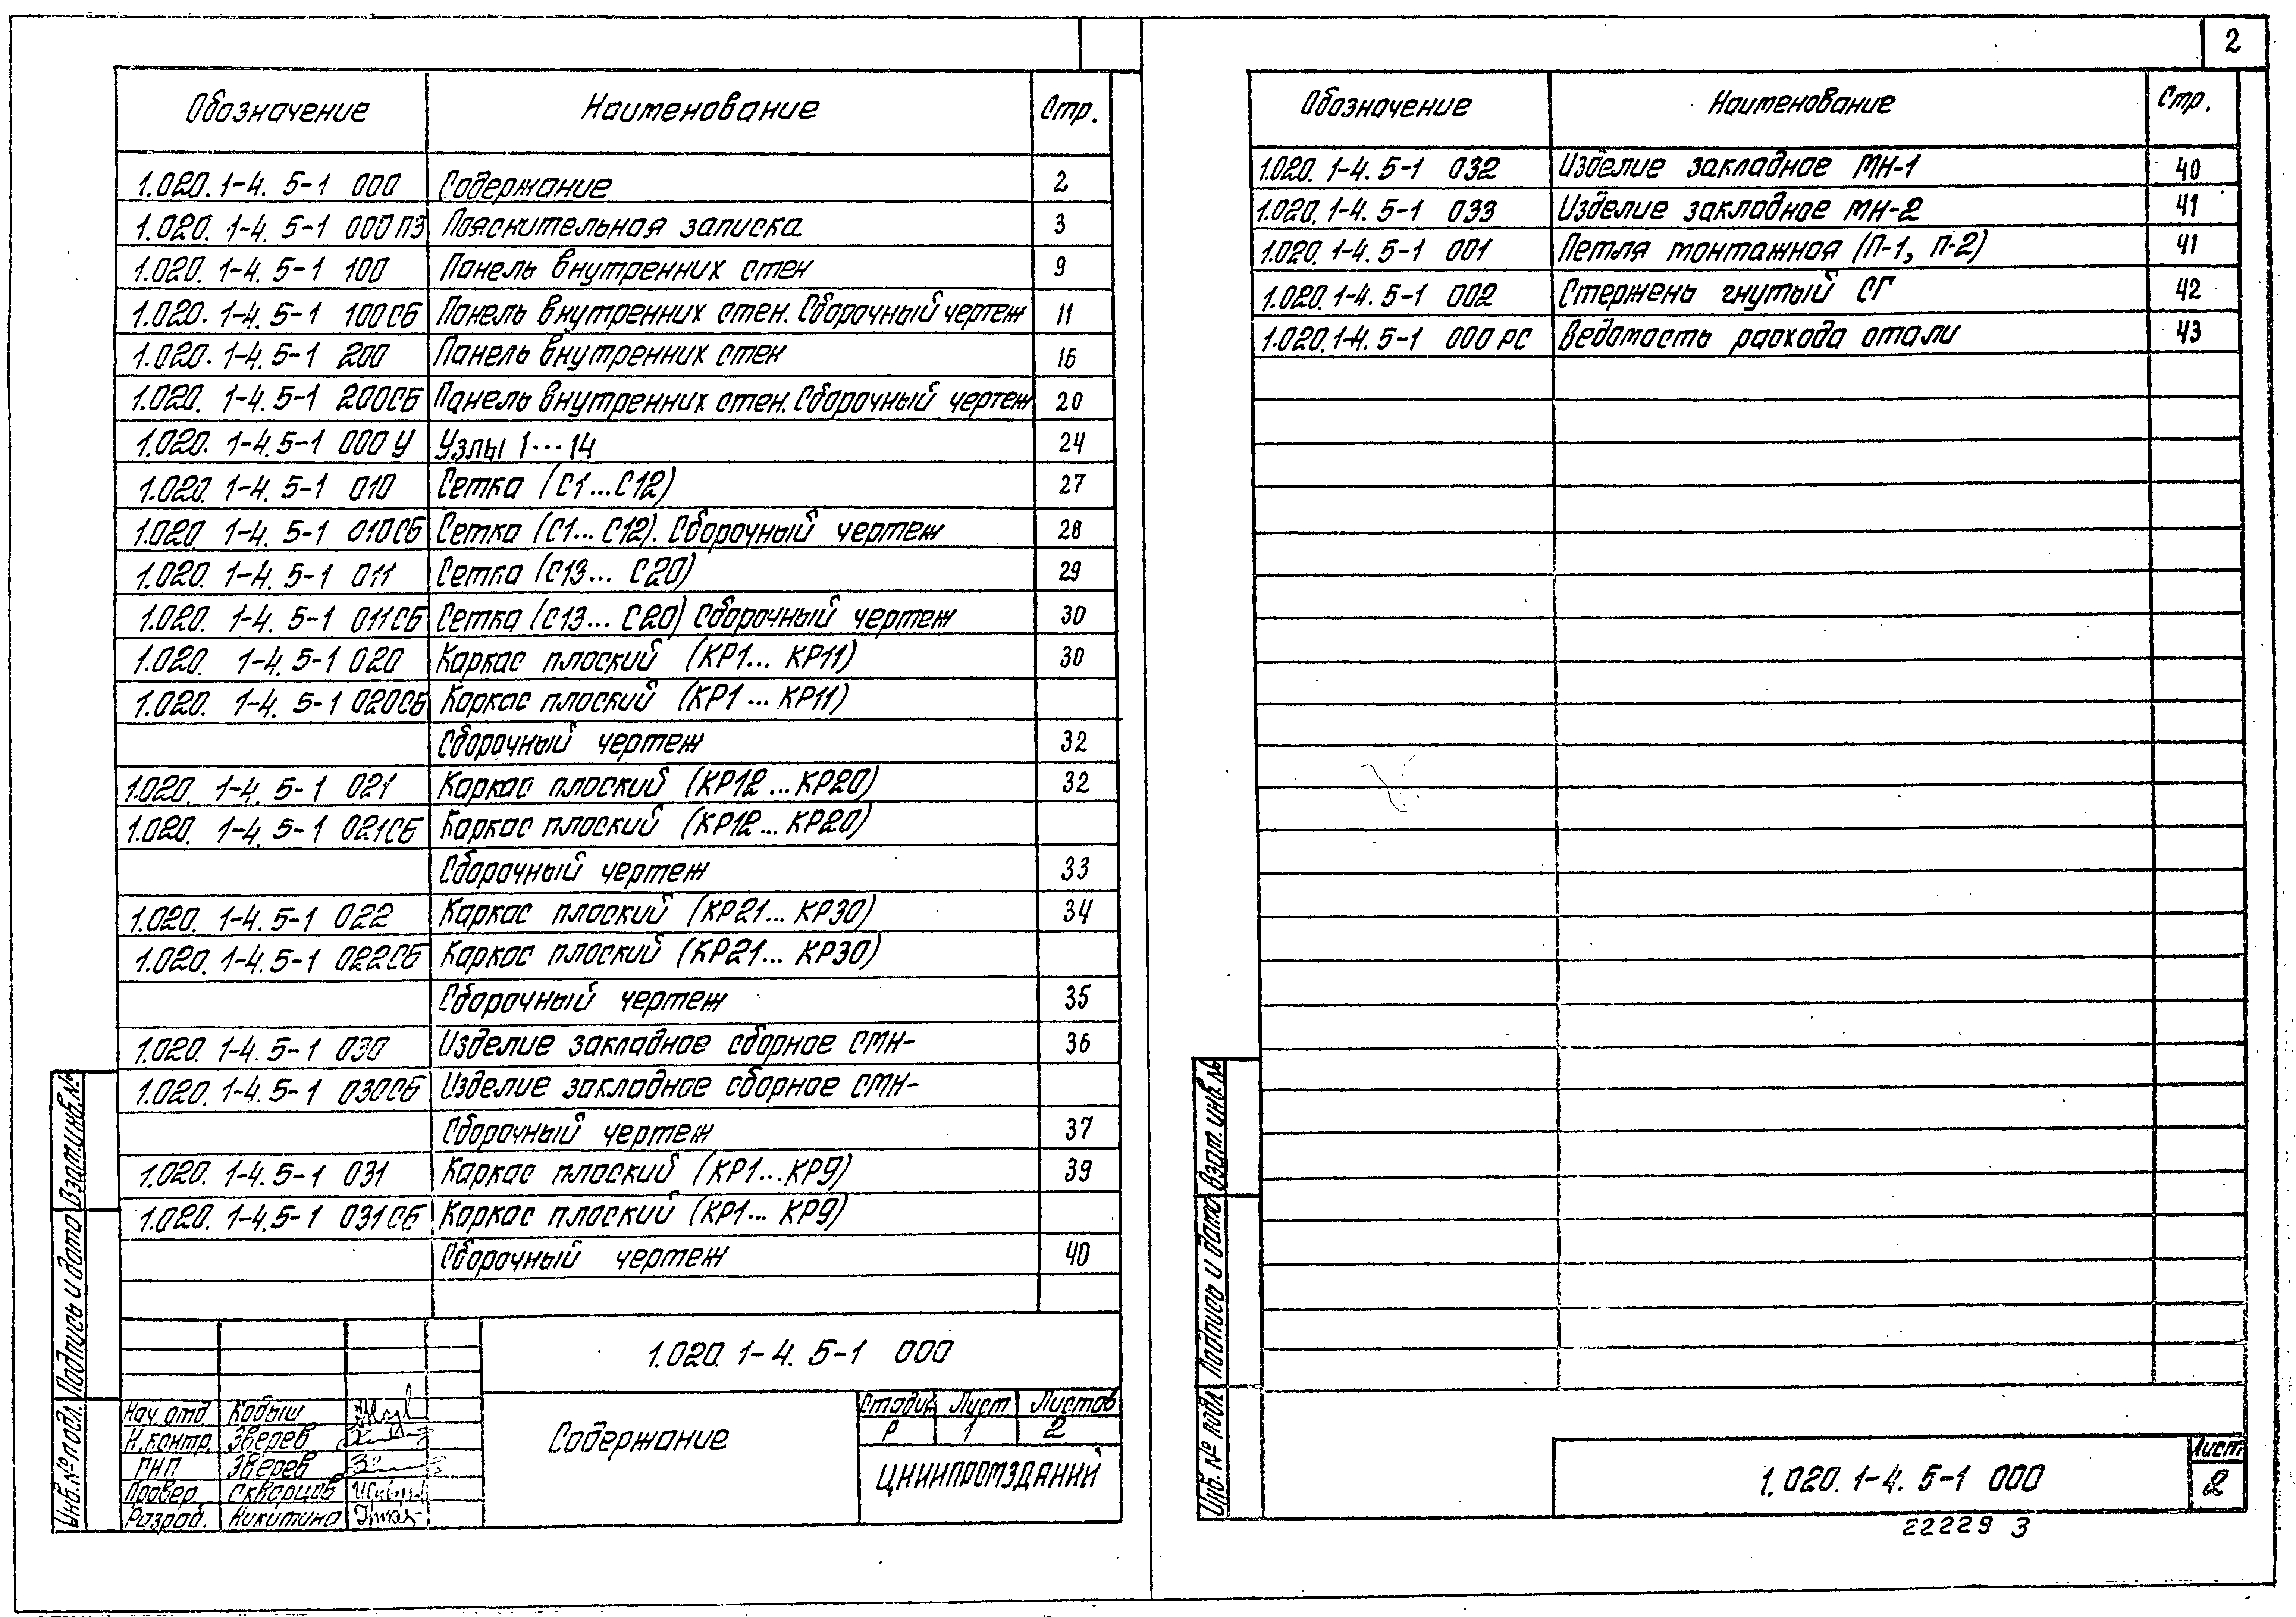 Обозначение Наименование Стр.
1.020.1-4.5-1 000 Содержание 2
1.020.1-4.5-1 000ПЗ Пояснительная записка 3
1.020.1-4.5-1 100 Панель внутренних стен 9
1.020.1-4.5-1 100СБ Панель внутренних стен. Сборочный чертеж 11
1.020.1-4.5-1 200 Панель внутренних стен 16
1.020.1-4.5-1 200СБ Панель внутренних стен. Сборочный чертеж 20
1.020.1-4.5-1 000У Узлы 1...14 24
1.020.1-4.5-1 010 Сетка (С1...С12) 27
1.020.1-4.5-1 010СБ Сетка (С1...С12). Сборочный чертеж 28
1.020.1-4.5-1 011 Сетка (С13...С20) 29
1.020.1-4.5-1 011СБ Сетка (С13...С20) Сборочный чертеж 30
1.020.1-4.5-1 020 Каркас плоский (КР1...КР11) 30
1.020.1-4.5-1 020СБ Каркас плоский (КР1...КР11)
Сборочный чертеж 32
1.020.1-4.5-1 021 Каркас плоский (КР12...КР20) 32
1.020.1-4.5-1 021СБ Каркас плоский (КР12...КР20)
Сборочный чертеж 33
1.020.1-4.5-1 022 Каркас плоский (КР21...КР30) 34
1.020.1-4.5-1 022СБ Каркас плоский (КР21...КР30)
Сборочный чертеж 35
1.020.1-4.5-1 030 Изделие закладное сборное СМН- 36
1.020.1-4.5-1 030СБ Изделие закладное сборное СМН-
Сборочный чертеж 37
1.020.1-4.5-1 031 Каркас плоский (КР1...КР9) 39
1.020.1-4.5-1 031СБ Каркас плоский (КР1...КР9)
Сборочный чертеж 40
Взам.инв.№
Подпись и дата
Инв.№ подл.
1.020.1-4.5-1 000
Нач.отд Кодыш
Н.контр. Зверев
ГИП Зверев
Провер. Скворцов
Разраб. Никитина
Содержание
Стадия Лист Листов
Р 1 2
ЦНИИПРОМЗДАНИЙ
2
Обозначение Наименование Стр.
1.020.1-4.5-1 032 Изделие закладное МН-1 40
1.020.1-4.5-1 033 Изделие закладное МН-2 41
1.020.1-4.5-1 001 Петля монтажная (П-1, П-2) 41
1.020.1-4.5-1 002 Стержень гнутый СГ 42
1.020.1-4.5-1 000РС Ведомость расхода стали 43
Взам.инв.№
Подпись и дата
Инв.№ подл
1.020.1-4.5-1 000
Лист
2
22229 3